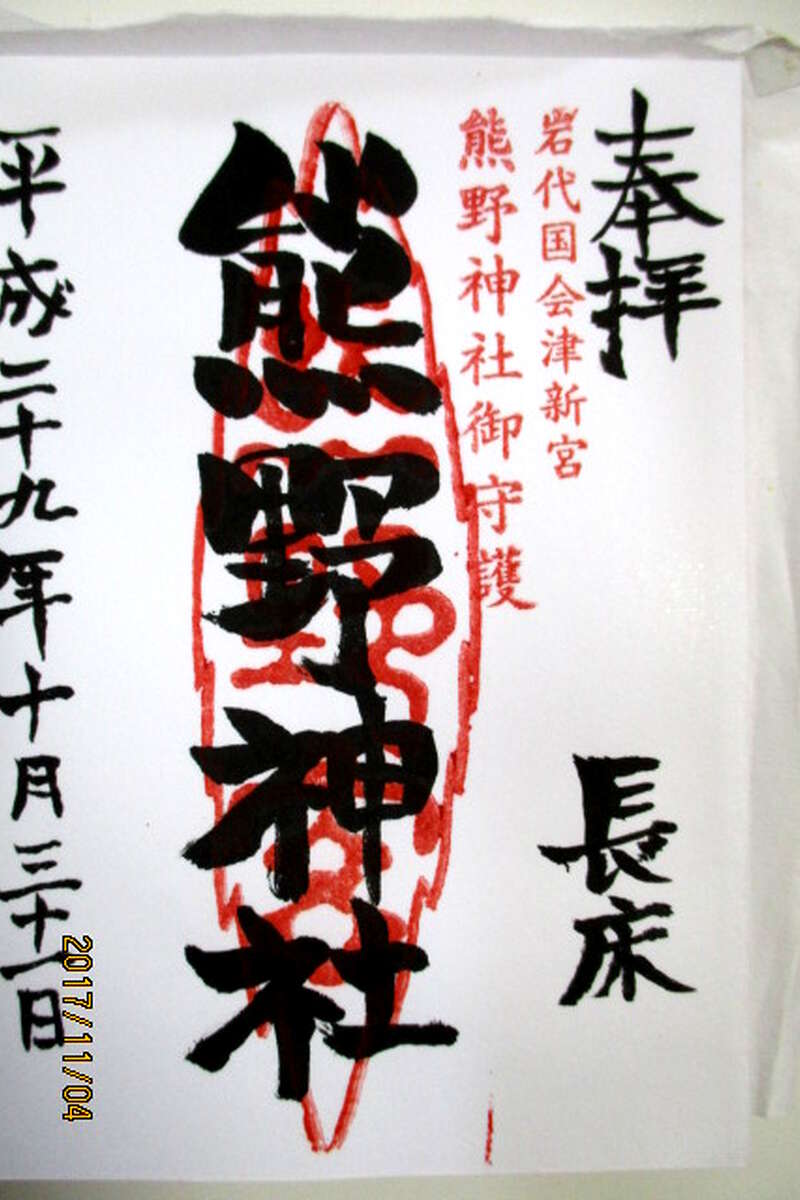 奉拝
長床
岩代国会津新宮
熊野神社御守護
熊野神社
平成二十九年十月三十一日
2017/11/04